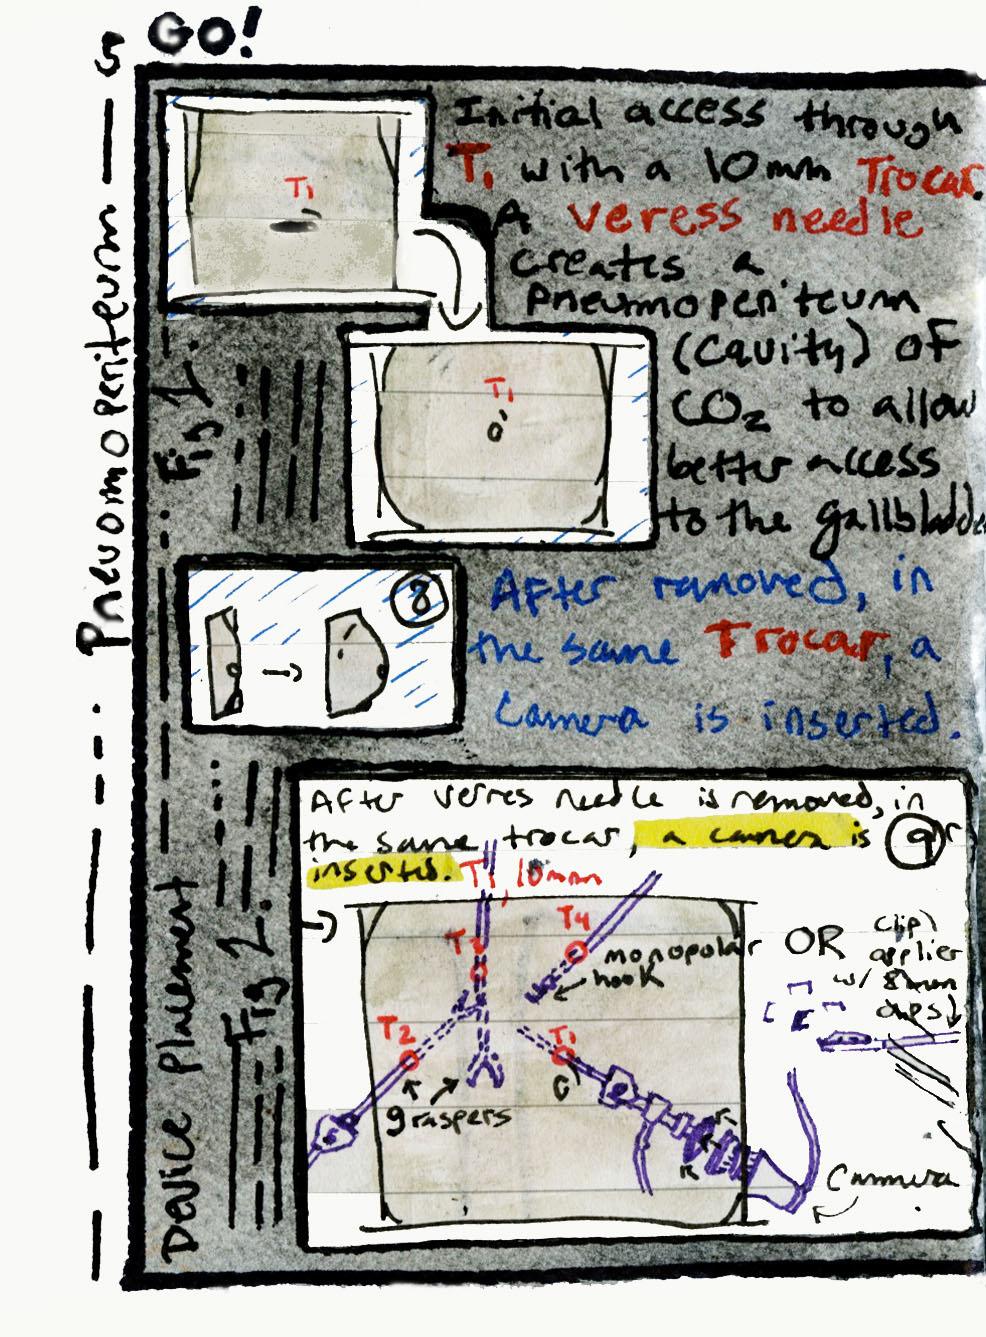 GO!
5
Pneuomoperiteum
T1
Initial access through
T1 with a 10mm Trocar.
A Veress needle
creates a
pneumoperiteum
(cavity) of
CO2 to allow
better access
to the gallbladde
Fig 1.
T1
8
After removed, in
the same Trocar, a
Camera is inserted.
Device Placement
Fig 2.
After verres needle is removed, in
the same trocar, a camera is
inserted.
9
T1, 10mm
T3
T4
monopolar
hook
OR
clip
applier
w/ 8mm
clips
T2
T1
graspers
Camera